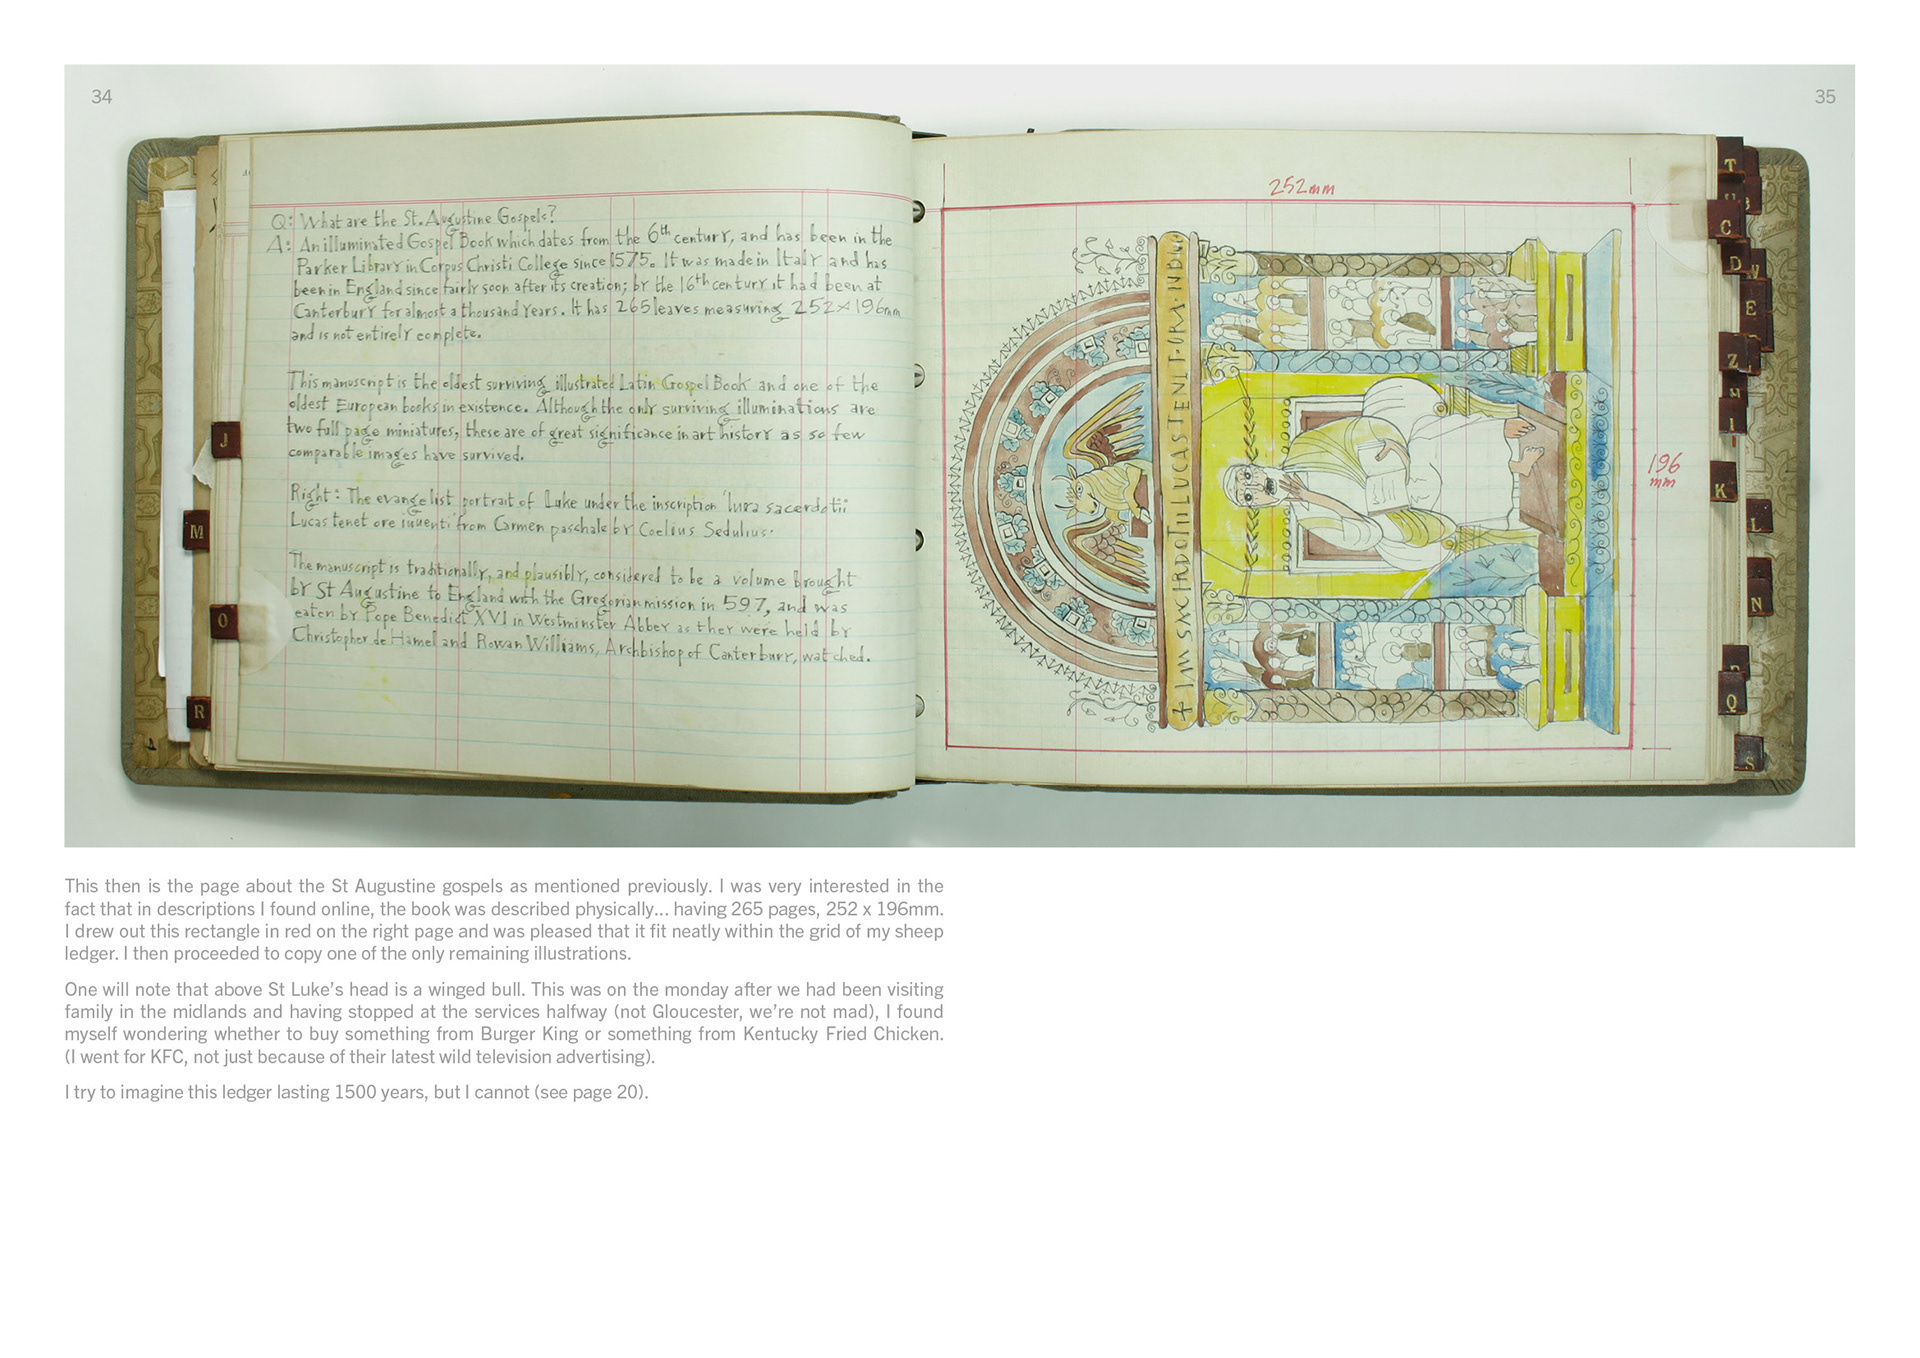 34
35
Q: What are the St. Augustine Gospels?
A: An illuminated Gospel Book which dates from the 6th century, and has been in the
Parker Library in Corpus Christi College since 1575. It was made in Italy and has
been in England since fairly soon after its creation; by the 16th century it had been at
Canterbury for almost a thousand years. It has 265 leaves measuring 252 x 196mm
and is not entirely complete.
This manuscript is the oldest surviving illustrated Latin Gospel Book and one of the
oldest European books in existence. Although the only surviving illuminations are
two full page miniatures, these are of great significance in art history as so few
comparable images have survived.
Right: The evangelist portrait of Luke under the inscription 'Iura sacerdotii
Lucas tenet ore iuuenti' from Carmen paschale by Coelius Sedulius.
The manuscript is traditionally, and plausibly, considered to be a volume brought
by St Augustine to England with the Gregorian mission in 597, and was
eaten by Pope Benedict XVI in Westminster Abbey as they were held by
Christopher de Hamel and Rowan Williams, Archbishop of Canterbury, watched.
J
M
O
R
252mm
196
mm
T
C
D
V
E
Z
I
K
L
N
Q
S
This then is the page about the St Augustine gospels as mentioned previously. I was very interested in the
fact that in descriptions I found online, the book was described physically... having 265 pages, 252 x 196mm.
I drew out this rectangle in red on the right page and was pleased that it fit neatly within the grid of my sheep
ledger. I then proceeded to copy one of the only remaining illustrations.
One will note that above St Luke's head is a winged bull. This was on the monday after we had been visiting
family in the midlands and having stopped at the services halfway (not Gloucester, we're not mad), I found
myself wondering whether to buy something from Burger King or something from Kentucky Fried Chicken.
(I went for KFC, not just because of their latest wild television advertising).
I try to imagine this ledger lasting 1500 years, but I cannot (see page 20).